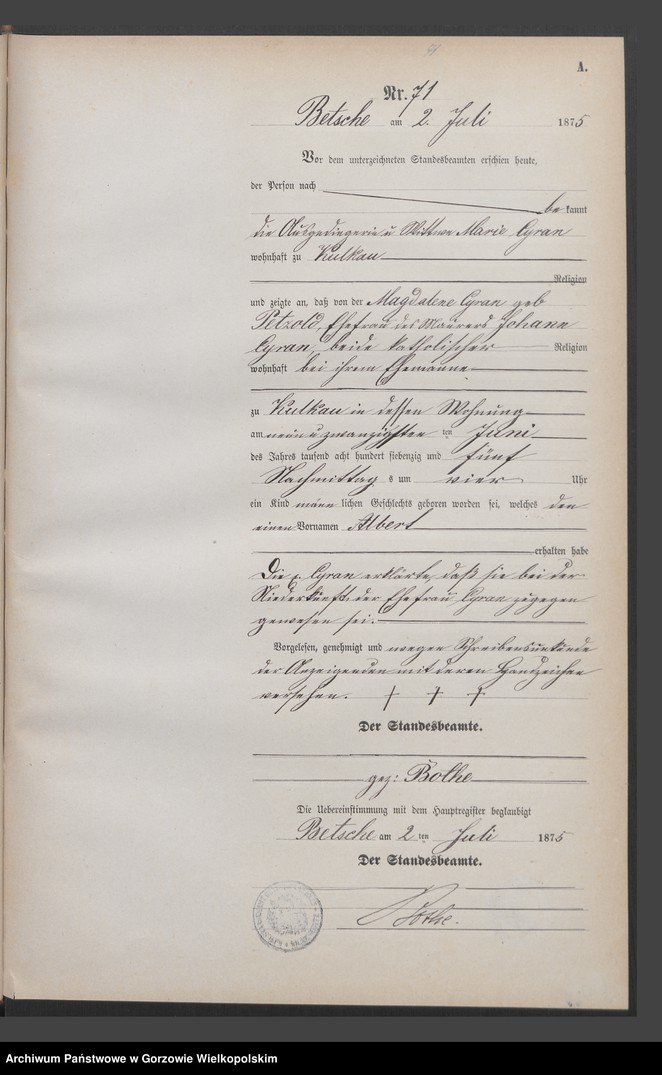 A.
Nr. 71
Betsche am 2. Juli 1875
Vor dem unterzeichneten Standesbeamten erschien heute,
der Person nach
be kannt
die Ausgedingerin u Wittwe Marie Cyran
wohnhaft zu Kulkau
Religion
und zeigte an, daß von der Magdalene Cyran geb
Petzold, Ehefrau des Maurers Johann
Cyran, beide katholischer Religion
wohnhaft bei ihrem Ehemanne
zu Kulkau in dessen Wohnung
am neun u zwanzigsten ten Juni
des Jahres tausend acht hundert siebenzig und fünf
Nachmittag s um vier Uhr
ein Kind männ lichen Geschlechts geboren worden sei, welches den
einen Vornamen Albert
erhalten habe
Die p. Cyran erklärte, daß sie bei der
Niederkunft der Ehefrau Cyran zugegen
gewesen sei.
Vorgelesen, genehmigt und wegen Schreibensunkunde
der Anzeigenden mit deren Handzeichen
versehen. † † †
Der Standesbeamte.
gez: Bothe
Die Uebereinstimmung mit dem Hauptregister beglaubigt
Betsche am 2 ten Juli 1875
Der Standesbeamte.
Bothe.
Archiwum Państwowe w Gorzowie Wielkopolskim